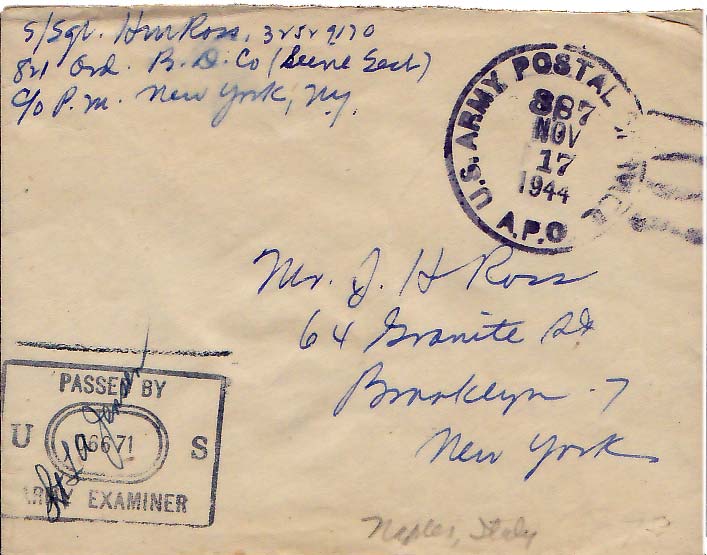 S/Sgt. HmRoss, 32529170
Ord. B. D. Co (Seine Sect)
C/o P.M. New York, NY.
U.S. ARMY POSTAL SERVICE
887
NOV
17
1944
A.P.O
Mr. J. H Ross
64 Granite St
Brooklyn - 7
New York
PASSED BY
U 66671 S
ARMY EXAMINER
Naples, Italy